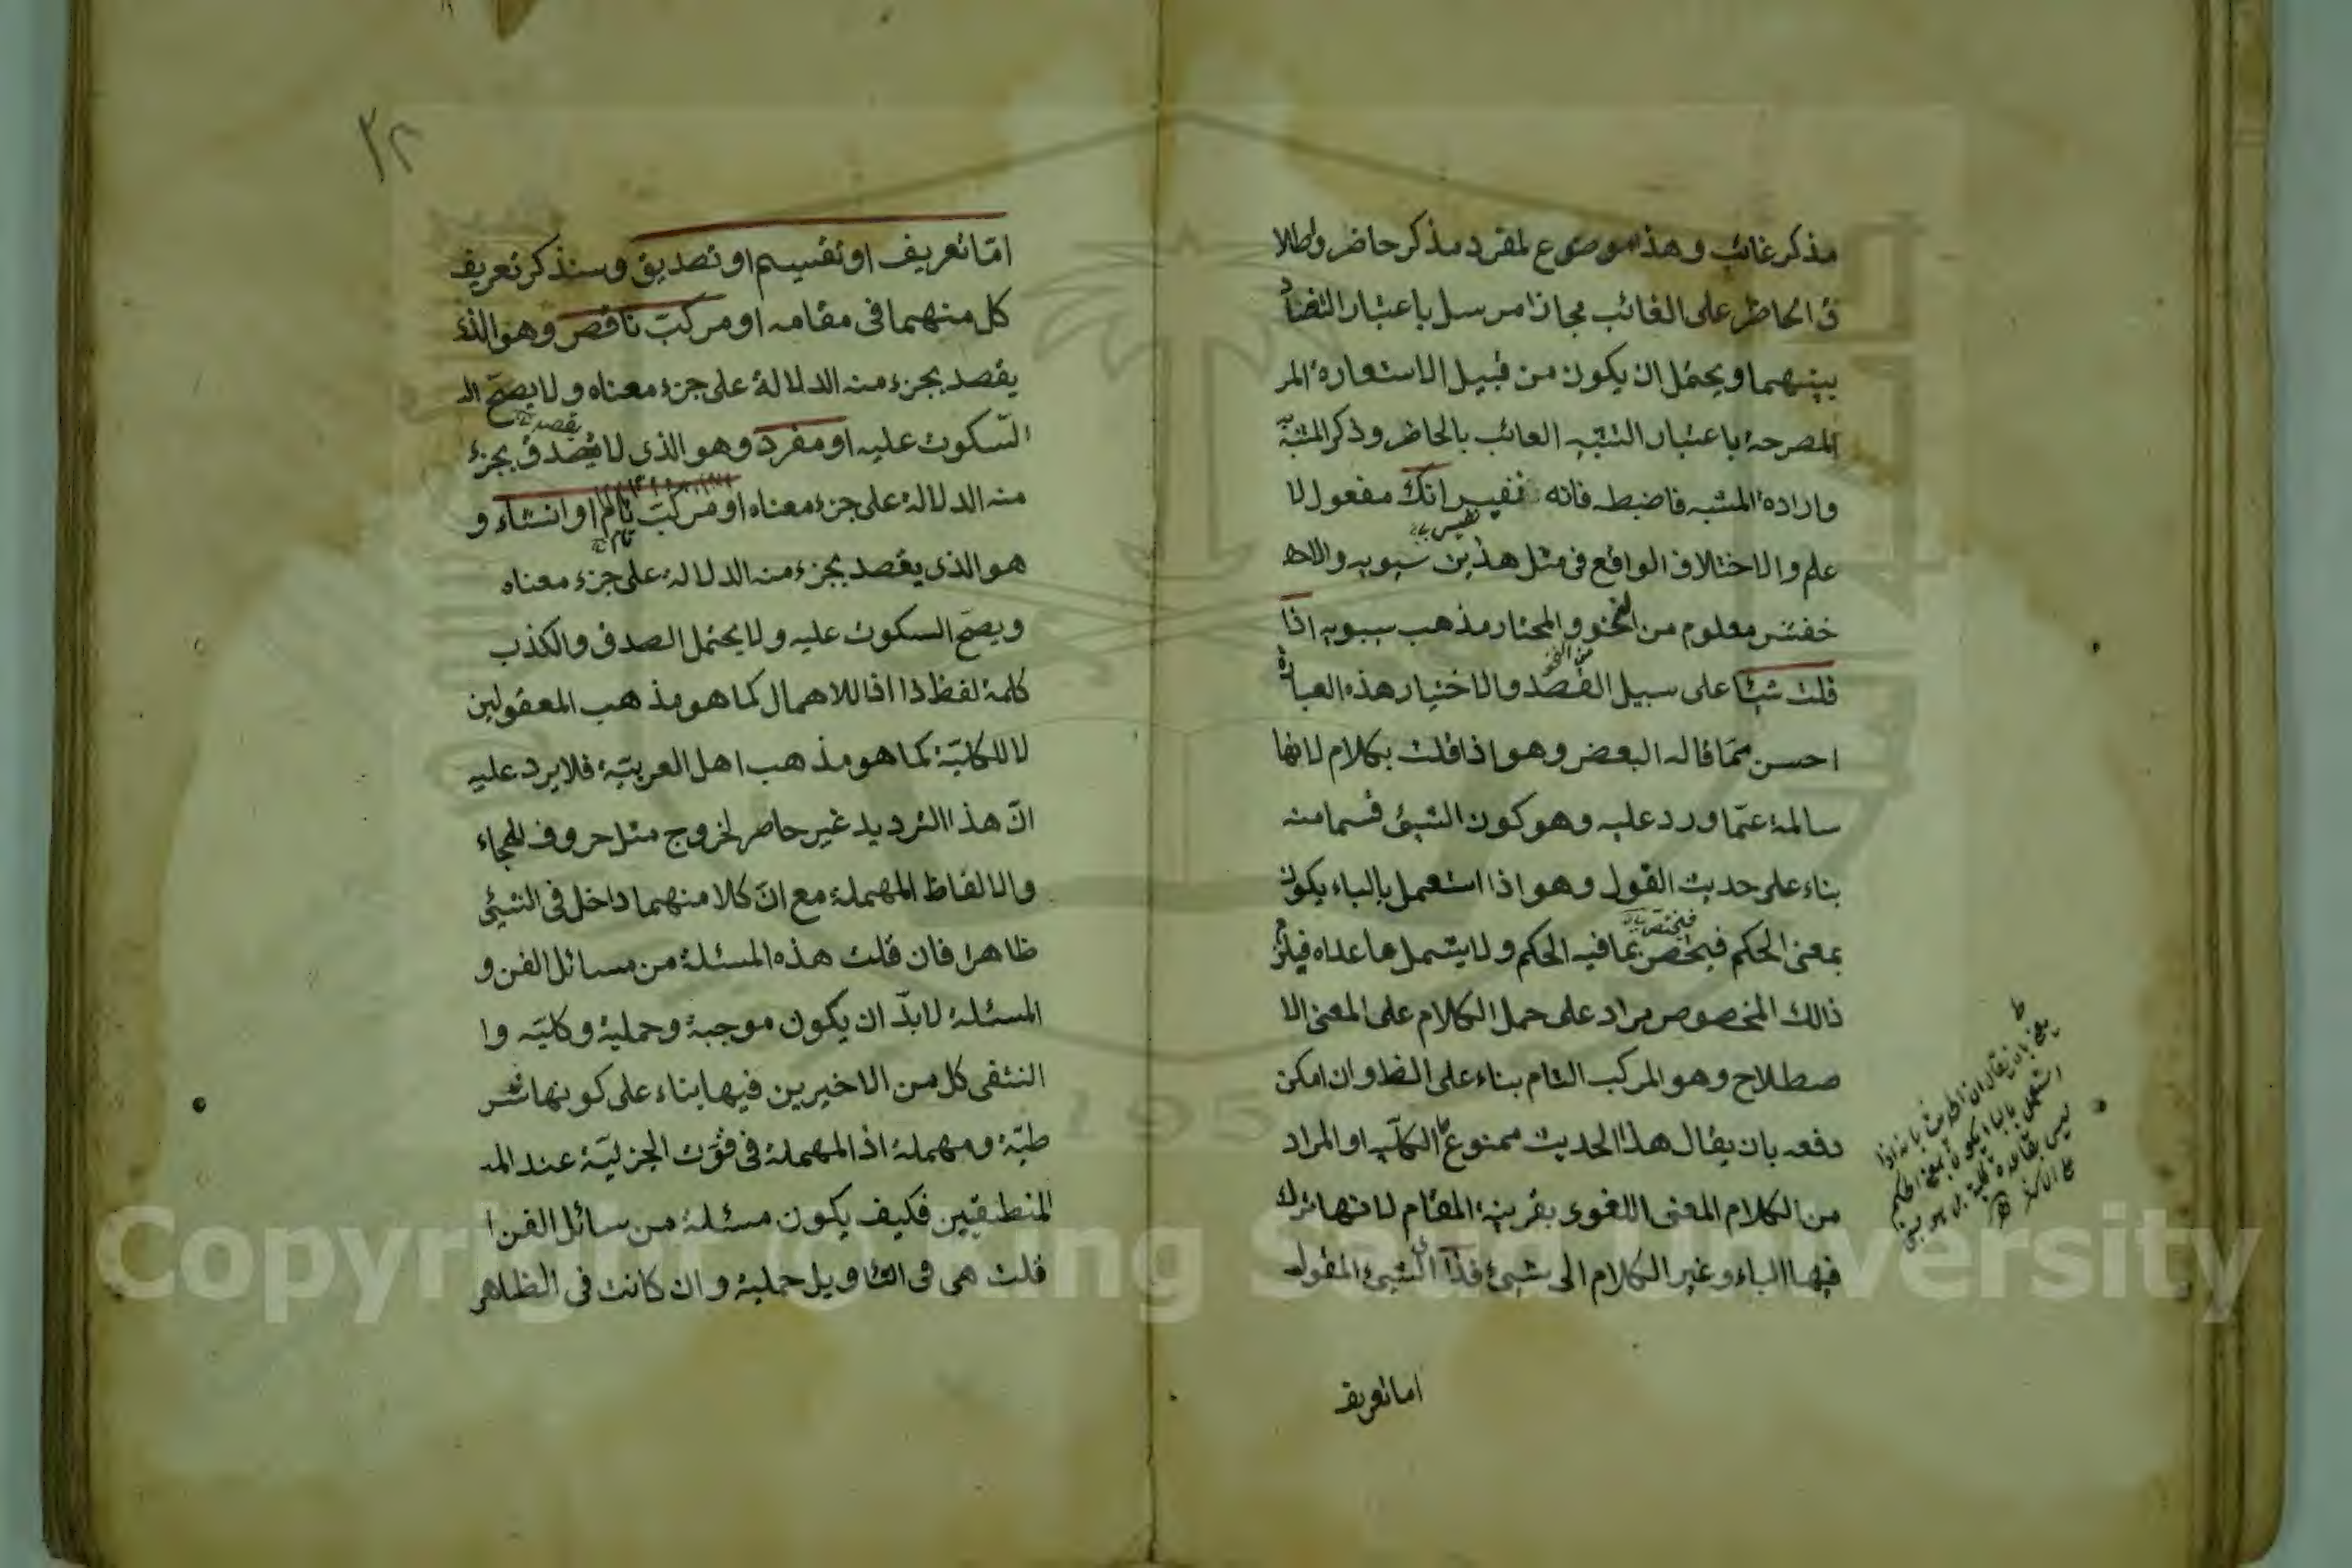 مذكر غائب وهذا موضوع لمفرد مذكر حاضر واطلا
ق الحاظر على الغائب مجازا مرسل باعتبار التضاد
بينهما ويحتمل ان يكون من قبيل الاستعارة المر
المصرحة باعتبار التشبيه الغائب بالحاضر وذكر المشبه
وارادة المشبه فاضبطه فانه نفيس انك مفعول لا
نفيس
علم والاختلاف الواقع فى مثل هذين سيبويه والاحد
خفش معلوم من النحو والمختار مذهب سيبويه اذا
من النحو
قلت شيئا على سبيل القصد والاختيار هذه العبارة
احسن مما قاله البعض وهو اذا قلت بكلام لانها
سالمة عما ورد عليه وهو كون الشيئ قسما منه
بناء على حديث القول وهو اذا استعمل بالباء يكون
فيختص
بمعنى الحكم فيختص بما فيه الحكم ولا يشمل ما عداه فيلزم
ذالك المخصوص مراد على حمل الكلام على المعنى الا
صطلاح وهو المركب التام بناء على الظ وان امكن
دفعه بان يقال هذا الحديث ممنوع الكلية او المراد
من الكلام المعنى اللغوى بقرينة المقام لانها ترك
فيها الباء وغير الكلام الى شيئ فذا الشيئ المقول
اما تعريف
يقال ان الحديث بانه اذا
استعمل بالباء يكون بمعنى الحكم
ليس بقاعدة كلية بل هو مبنى
على الاكثر
٢٣
امّا تعريف او تقسيم او تصديق وسنذكر تعريف
كل منهما فى مقامه او مركب ناقص وهو الذى
يقصد بجزء منه الدلالة على جزء معناه ولا يصح الـ
يقصد
السّكوت عليه او مفرد وهو الذى لا يصدق بجزء
منه الدلالة على جزء معناه او مركب تام او انشاء و
تام
هو الذى يقصد بجزء منه الدلالة على جزء معناه
ويصح السكوت عليه ولا يحتمل الصدق والكذب
كلمة لفظ ذا اذا للاهمال كما هو مذهب المعقولين
لا للكليّة كما هو مذهب اهل العربيّة فلا يرد عليه
انّ هذا الترديد غير حاصر لخروج مثل حروف الهجاء
والالفاظ المهملة مع انّ كلا منهما داخل فى الشيئ
ظاهرا فان قلت هذه المسئلة من مسائل الفن و
المسئلة لابدّ ان يكون موجبة وحملية وكليّة وا
النتفى كل من الاخيرين فيها بناء على كونها شر
طيّة ومهملة اذ المهملة فى قوّت الجزئيّة عند المـ
المنطقيين فكيف يكون مسئلة من سائل الفن ا
قلت هى فى التاويل حملية وان كانت فى الظاهر
Copyright © King Saud University
195